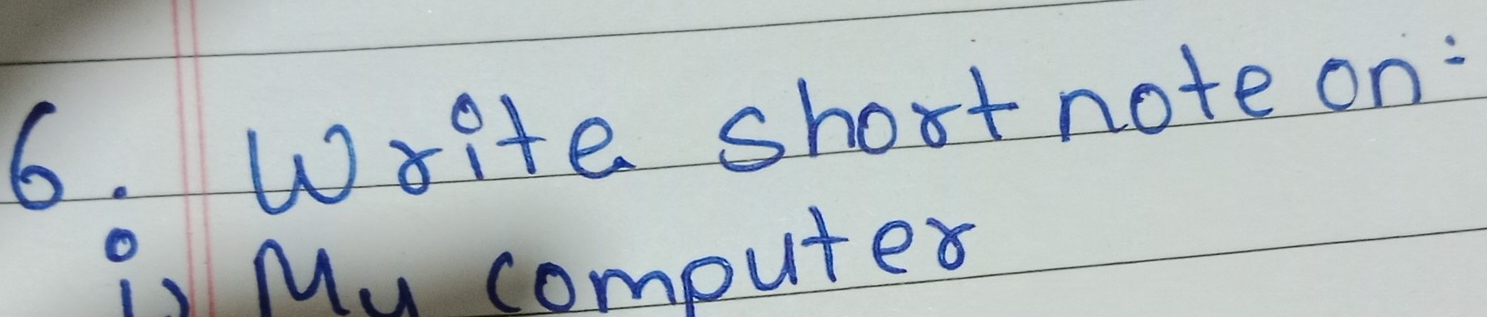 6. Write short note on:
i) My computer